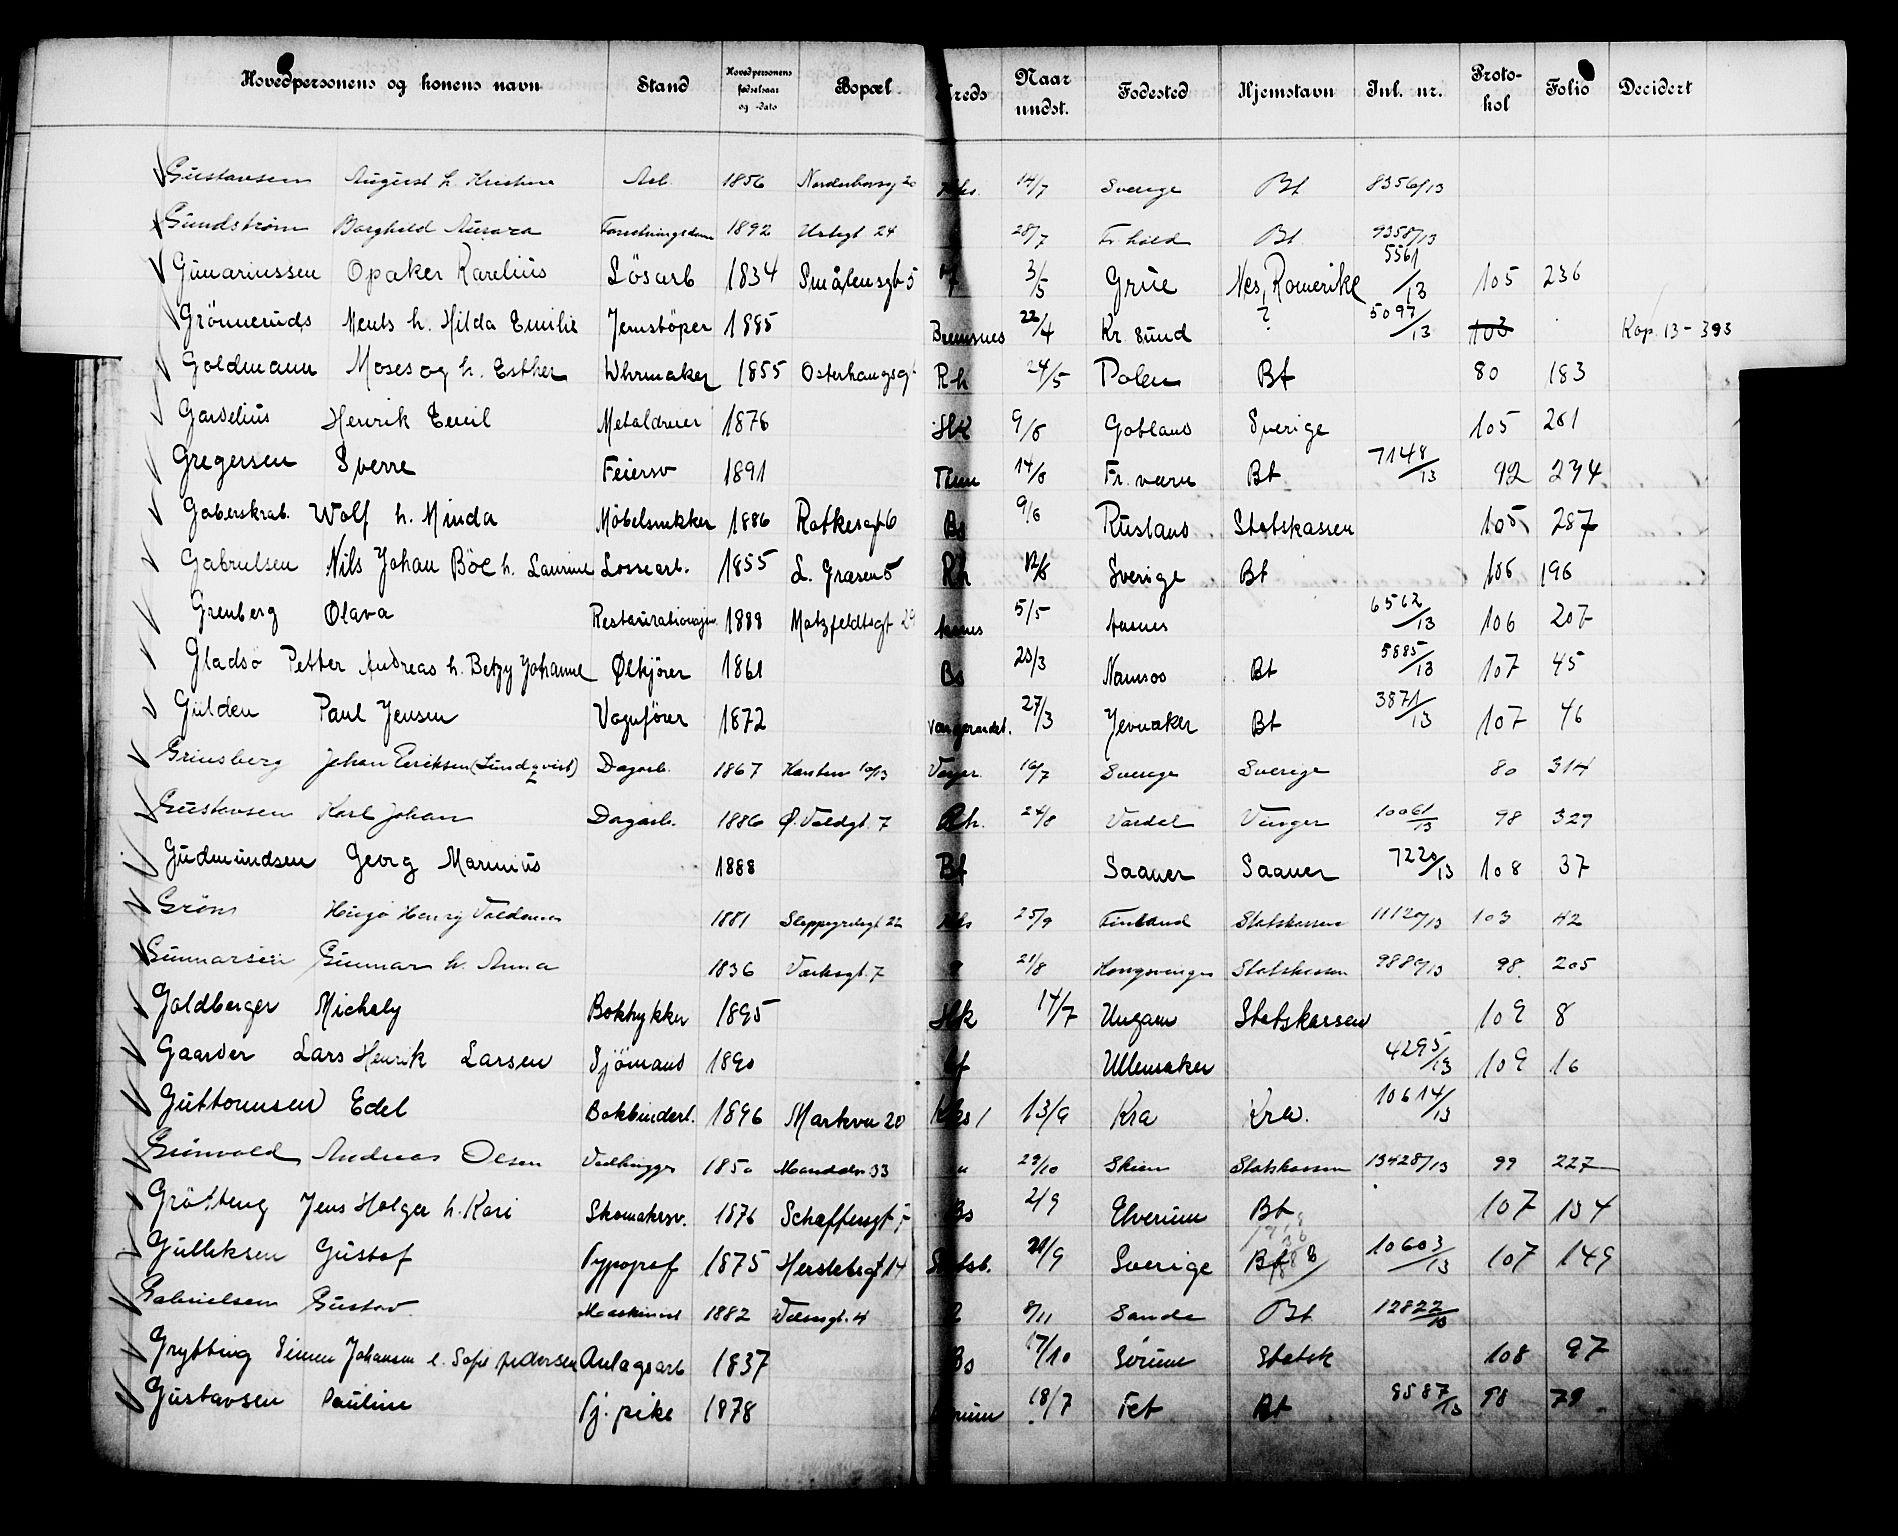 Hovedpersonens og konens navn Stand Hovedpersonens fødselsaar og -dato Bopæl Kreds Naar undst. Fødested Hjemstavn Inl. nr. Protokol Folio Decidert
Gustavsen August h. Kristine Arb. 1856 14/7 Sverige Bt 8356/13
Sundstrøm Borghild Aurora 1892 Urtegt 24 28/7 Fr.hald Bt 9358/13
Gunariussen Opaker Karelius Lösarb 1834 Smålensgt 5 3/5 Grue Nes, Romerike 5561/13 105 236
Grönneruds Ments h. Hilda Emilie Jernstöper 1885 Bremsnes 22/4 Kr. sund ? 5097/13 103 Kop. 13-393
Goldmann Moses og h. Esther Uhrmaker 1855 Osterhausgt Rh 24/5 Polen Bt 80 183
Garselius Henrik Emil Metaldreier 1876 9/6 Gotland Sverige 105 261
Gregersen Sverre Feiersv 1891 14/6 Fr. værn Bt 7148/13 92 274
Goberskrab. Wolf h. Minda Möbelsnekker 1886 Ratkesgt 6 Bs 9/6 Rusland Statskassen 105 287
Gabrielsen Nils Johan Böe h. Laurine Losearb. 1855 L. Grænsen 5 Rh 12/6 Sverige Bt 106 196
Grenberg Olava 1888 Motzfeldtsgt 29 Aasnes 5/5 Aasnes 6562/13 106 207
Gladsö Petter Andreas h. Betzy Johanne Ølkjörer 1861 Bs 25/3 Namsos Bt 5885/13 107 45
Gulden Paul Jensen Vognförer 1872 27/3 Jevnaker Bt 3871/13 107 46
Grinsberg Johan Eriksen (Lindqvist) Dagarb. 1867 16/7 Sverige Sverige 80 314
Gustavsen Karl Johan Dagarb. 1886 Ø. Voldgt. 7 Rh. 24/6 Vardal Vinger 10061/13 98 329
Gudmundsen Georg Marinius 1888 Bf Saaner Saaner 7220/13 108 37
Grøn Hugo Henry Valdemar 1881 22 25/9 Finland Statskassen 11120/13 103 42
Gunnarsen Gunnar h. Anna 1836 Verksgt. 7 21/8 Kongsvinger Statskassen 9880/13 98 205
Goldberger Michaly Boktrykker 1895 14/7 Ungarn Statskassen 109 8
Gaarder Lars Henrik Larsen Sjömand 1890 Ullensaker 4295/13 109 16
Guttormsen Edel Bokbindert. 1896 Markvn 20 13/9 Kra Kra. 10614/13
Grünvold Andreas Olsen Vedhugger 1850 33 " 29/10 Skien Statskassen 13428/13 99 227
Gröttbeng Jens Holger h. Kari Skomakersv. 1876 Scheffersgt 7 Bs 2/9 Elverum Bt 107 134
Gulliksen Gustaf Typograf 1875 Herslebsgt 14 21/9 Sverige Bt 10603/13 107 149
Gabrielsen Gustav Maskinist 1882 4 8/11 Sande Bt 12822/13
Grytting Simen Johansen e. Sofie Pedersen Anlagsarb 1837 Bs 17/10 Sörum Statsk 108 97
Gustavsen Pauline Tj. pike 1878 18/7 Fet Bt 9587/13 98 79